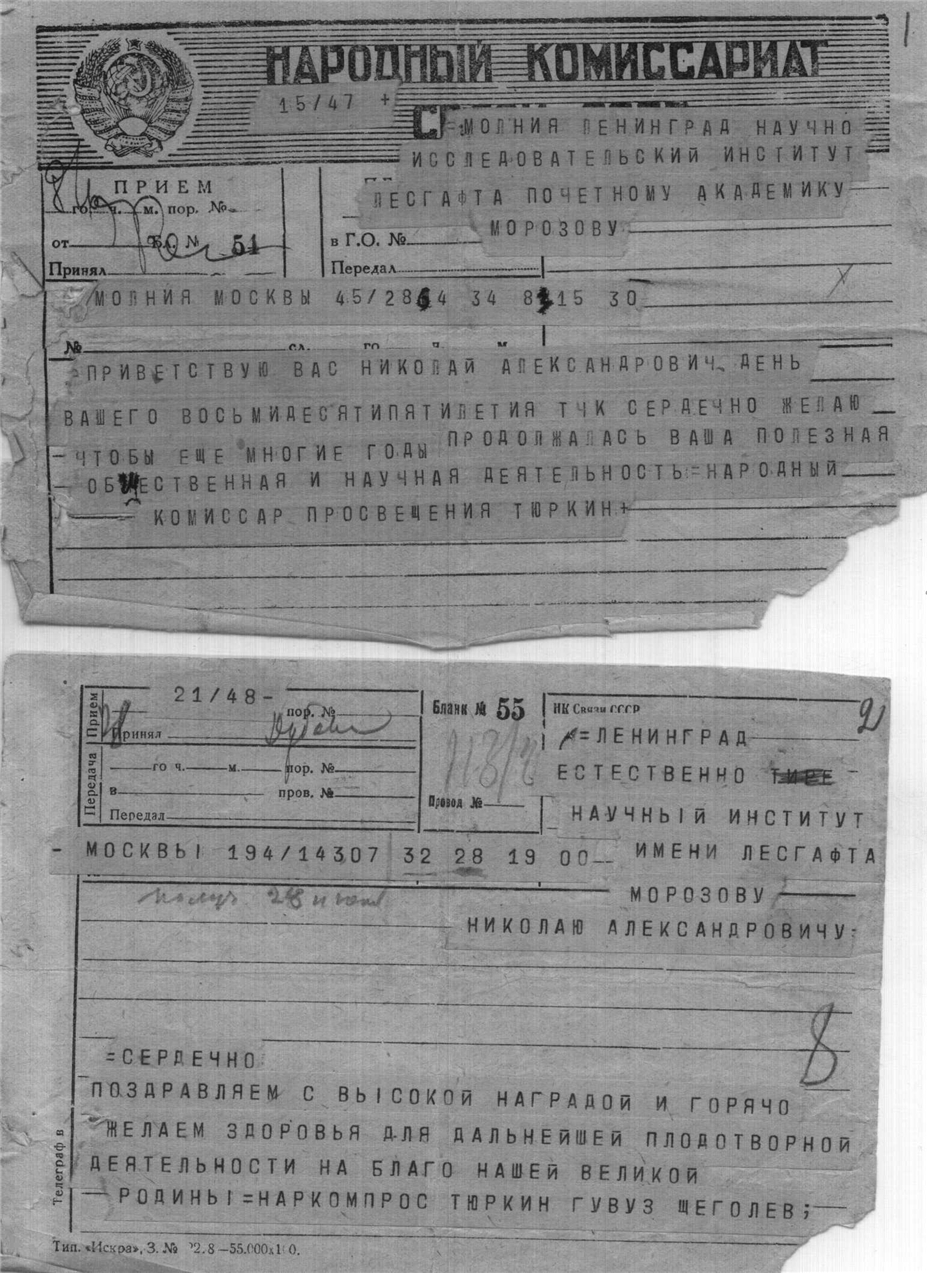 1
НАРОДНЫЙ КОМИССАРИАТ
15/47 +
=МОЛНИЯ ЛЕНИНГРАД НАУЧНО
ИССЛЕДОВАТЕЛЬСКИЙ ИНСТИТУТ
ЛЕСГАФТА ПОЧЕТНОМУ АКАДЕМИКУ
МОРОЗОВУ
ПРИЕМ
го ч. м. пор. №
от № 51
в Г.О. №
Принял
Передал
МОЛНИЯ МОСКВЫ 45/2864 34 8 15 30
№
=ПРИВЕТСТВУЮ ВАС НИКОЛАЙ АЛЕКСАНДРОВИЧ ДЕНЬ
ВАШЕГО ВОСЬМИДЕСЯТИПЯТИЛЕТИЯ ТЧК СЕРДЕЧНО ЖЕЛАЮ
ЧТОБЫ ЕЩЕ МНОГИЕ ГОДЫ ПРОДОЛЖАЛАСЬ ВАША ПОЛЕЗНАЯ
ОБЩЕСТВЕННАЯ И НАУЧНАЯ ДЕЯТЕЛЬНОСТЬ=НАРОДНЫЙ
КОМИССАР ПРОСВЕЩЕНИЯ ТЮРКИН+
Прием
21/48-
пор. №
Принял
Бланк № 55
НК Связи СССР
=ЛЕНИНГРАД
ЕСТЕСТВЕННО ТИРЕ -
НАУЧНЫЙ ИНСТИТУТ
Передача
го ч. м. пор. №
в пров. №
Передал
Провод №
- МОСКВЫ 194/14307 32 28 19 00 ИМЕНИ ЛЕСГАФТА
МОРОЗОВУ
НИКОЛАЮ АЛЕКСАНДРОВИЧУ=
8
=СЕРДЕЧНО
ПОЗДРАВЛЯЕМ С ВЫСОКОЙ НАГРАДОЙ И ГОРЯЧО
ЖЕЛАЕМ ЗДОРОВЬЯ ДЛЯ ДАЛЬНЕЙШЕЙ ПЛОДОТВОРНОЙ
ДЕЯТЕЛЬНОСТИ НА БЛАГО НАШЕЙ ВЕЛИКОЙ
РОДИНЫ=НАРКОМПРОС ТЮРКИН ГУВУЗ ЩЕГОЛЕВ;
Телеграф в
Тип. «Искра», З. №